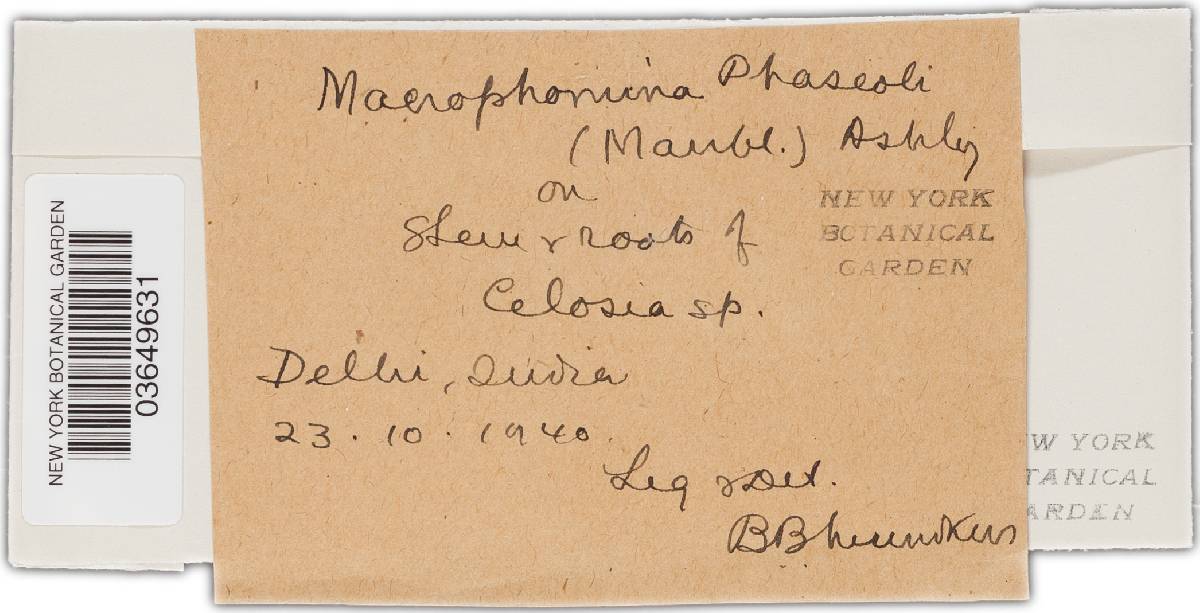 Macrophomina Phaseoli
(Maubl.) Ashby
on
Stem & roots of
Celosia sp.
Delhi, India
23.10.1940.
Leg & Det.
NEW YORK
BOTANICAL
GARDEN
W YORK
TANICAL
ARDEN
NEW YORK BOTANICAL GARDEN
03649631